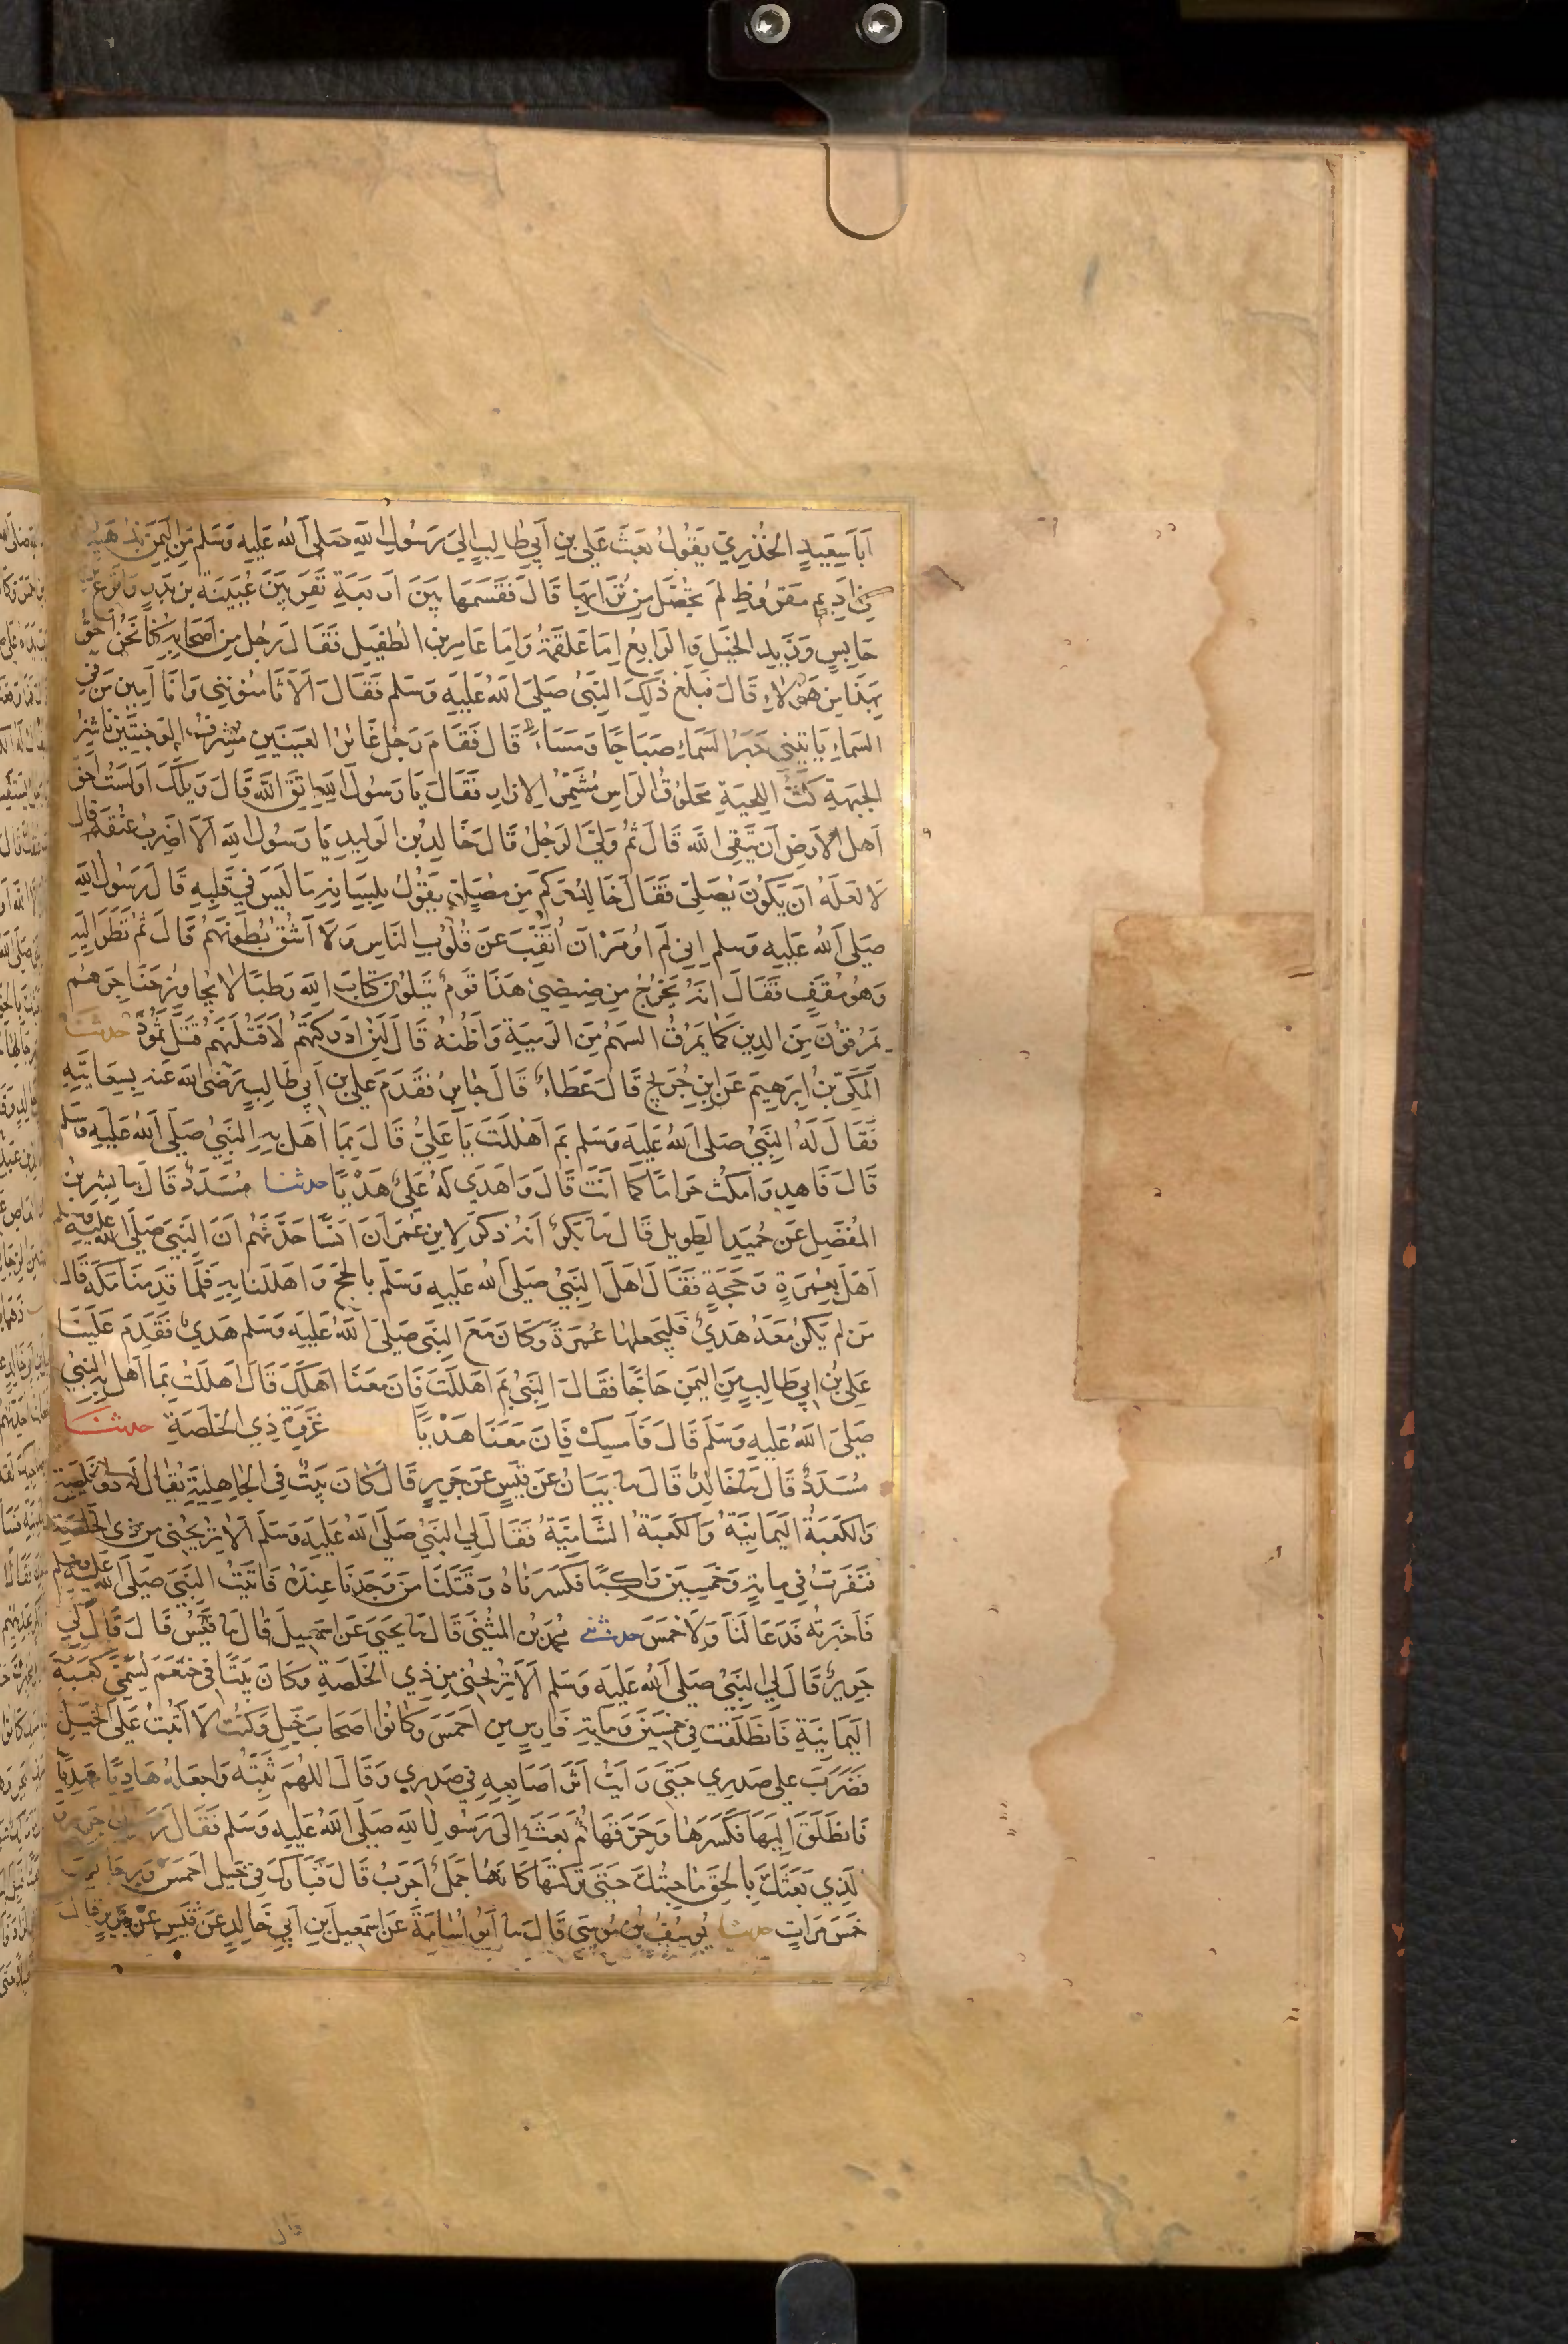 أَبَا سَعِيدٍ الخُدْرِيَّ يَقُولُ بَعَثَ عَلِيُّ بنُ أَبِي طَالِبٍ إِلَى رَسُولِ اللهِ صَلَّى اللهُ عَلَيهِ وَسَلَّم مِنَ اليَمَنِ بِذُهَيْبَةٍ
فِي أَدِيمٍ مَقرُوظٍ لَم تُحَصَّل مِن تُرَابِهَا قَالَ فَقَسَمَهَا بَيْنَ أَربَعَةِ نَفَرٍ بَيْنَ عُيَيْنَةَ بنِ بَدْرٍ وَأَقرَعَ بنِ
حَابِسٍ وَزَيدِ الخَيلِ وَالرَّابِعُ إِمَّا عَلقَمَةُ وَإِمَّا عَامِرُ بنُ الطُّفَيلِ فَقَالَ رَجُلٌ مِن أَصحَابِهِ كُنَّا نَحنُ أَحَقَّ
بِهَذَا مِن هَؤُلَاءِ قَالَ فَبَلَغَ ذَلِكَ النَّبِيَّ صَلَّى اللهُ عَلَيهِ وَسَلَّم فَقَالَ أَلَا تَأمَنُونَنِي وَأَنَا أَمِينُ مَن فِي
السَّمَاءِ يَأتِينِي خَبَرُ السَّمَاءِ صَبَاحًا وَمَسَاءً قَالَ فَقَامَ رَجُلٌ غَائِرُ العَينَينِ مُشرِفُ الوَجنَتَينِ نَاشِزُ
الجَبهَةِ كَثُّ اللِّحيَةِ مَحلُوقُ الرَّاسِ مُشَمَّرُ الإِزَارِ فَقَالَ يَا رَسُولَ اللهِ اتَّقِ اللهَ قَالَ وَيلَكَ أَوَلَستُ أَحَقَّ
أَهلِ الأَرضِ أَن يَتَّقِيَ اللهَ قَالَ ثُمَّ وَلَّى الرَّجُلُ قَالَ خَالِدُ بنُ الوَلِيدِ يَا رَسُولَ اللهِ أَلَا أَضرِبُ عُنُقَهُ قَالَ
لَا لَعَلَّهُ أَن يَكُونَ يُصَلِّي فَقَالَ خَالِدٌ وَكَم مِن مُصَلٍّ يَقُولُ بِلِسَانِهِ مَا لَيسَ فِي قَلبِهِ قَالَ رَسُولُ اللهِ
صَلَّى اللهُ عَلَيهِ وَسَلَّم إِنِّي لَم أُومَر أَن أُنَقِّبَ عَن قُلُوبِ النَّاسِ وَلَا أَشُقَّ بُطُونَهُم قَالَ ثُمَّ نَظَرَ إِلَيهِ
وَهُوَ مُقَفٍّ فَقَالَ إِنَّهُ يَخرُجُ مِن ضِئضِئِ هَذَا قَومٌ يَتلُونَ كِتَابَ اللهِ رَطبًا لَا يُجَاوِزُ حَنَاجِرَهُم
يَمرُقُونَ مِنَ الدِّينِ كَمَا يَمرُقُ السَّهمُ مِنَ الرَّمِيَّةِ وَأَظُنُّهُ قَالَ لَئِن أَدرَكتُهُم لَأَقتُلَنَّهُم قَتلَ ثَمُودَ حدثنا
المَكِّيُّ بنُ إِبرَهِيمَ عَنِ ابنِ جُرَيجٍ قَالَ عَطَاءٌ قَالَ جَابِرٌ فَقَدِمَ عَلِيُّ بنُ أَبِي طَالِبٍ رَضِيَ اللهُ عَنهُ بِسِعَايَتِهِ
فَقَالَ لَهُ النَّبِيُّ صَلَّى اللهُ عَلَيهِ وَسَلَّم بِمَ أَهلَلتَ يَا عَلِيُّ قَالَ بِمَا أَهَلَّ بِهِ النَّبِيُّ صَلَّى اللهُ عَلَيهِ وَسَلَّم
قَالَ فَاهدِ وَامكُث حَرَامًا كَمَا أَنتَ قَالَ وَأَهدَى لَهُ عَلِيٌّ هَديًا حدثنا مُسَدَّدٌ قَالَ نا بِشرُ بنُ
المُفَضَّلِ عَن حُمَيدٍ الطَّوِيلِ قَالَ نا بَكرٌ أَنَّهُ ذَكَرَ لِابنِ عُمَرَ أَنَّ أَنَسًا حَدَّثَهُم أَنَّ النَّبِيَّ صَلَّى اللهُ عَلَيهِ وَسَلَّم
أَهَلَّ بِعُمرَةٍ وَحَجَّةٍ فَقَالَ أَهَلَّ النَّبِيُّ صَلَّى اللهُ عَلَيهِ وَسَلَّم بِالحَجِّ وَأَهلَلنَا بِهِ فَلَمَّا قَدِمنَا مَكَّةَ قَالَ
مَن لَم يَكُن مَعَهُ هَديٌ فَليَجعَلهَا عُمرَةً وَكَانَ مَعَ النَّبِيِّ صَلَّى اللهُ عَلَيهِ وَسَلَّم هَديٌ فَقَدِمَ عَلَينَا
عَلِيُّ بنُ أَبِي طَالِبٍ مِنَ اليَمَنِ حَاجًّا فَقَالَ النَّبِيُّ بِمَ أَهلَلتَ فَإِنَّ مَعَنَا أَهلَكَ قَالَ أَهلَلتُ بِمَا أَهَلَّ بِهِ النَّبِيُّ
صَلَّى اللهُ عَلَيهِ وَسَلَّم قَالَ فَأَمسِك فَإِنَّ مَعَنَا هَديًا غَزوَةُ ذِي الخَلَصَةِ حدثنا
مُسَدَّدٌ قَالَ نا خَالِدٌ قَالَ نا بَيَانٌ عَن قَيسٍ عَن جَرِيرٍ قَالَ كَانَ بَيتٌ فِي الجَاهِلِيَّةِ يُقَالُ لَهُ ذُو الخَلَصَةِ
وَالكَعبَةُ اليَمَانِيَّةُ وَالكَعبَةُ الشَّامِيَّةُ فَقَالَ لِي النَّبِيُّ صَلَّى اللهُ عَلَيهِ وَسَلَّم أَلَا تُرِيحُنِي مِن ذِي الخَلَصَةِ
فَنَفَرتُ فِي مِايةٍ وَخَمسِينَ رَاكِبًا فَكَسَرنَاهُ وَقَتَلنَا مَن وَجَدنَا عِندَهُ فَأَتَيتُ النَّبِيَّ صَلَّى اللهُ عَلَيهِ وَسَلَّم
فَأَخبَرتُهُ فَدَعَا لَنَا وَلِأَحمَسَ حدثني مُحَمَّدُ بنُ المُثَنَّى قَالَ نا يَحيَى عَن إِسمَعِيلَ قَالَ نا قَيسٌ قَالَ قَالَ لِي
جَرِيرٌ قَالَ لِي النَّبِيُّ صَلَّى اللهُ عَلَيهِ وَسَلَّم أَلَا تُرِيحُنِي مِن ذِي الخَلَصَةِ وَكَانَ بَيتًا فِي خَثعَمَ يُسَمَّى كَعبَةَ
اليَمَانِيَةِ فَانطَلَقتُ فِي خَمسِينَ وَمِايةِ فَارِسٍ مِن أَحمَسَ وَكَانُوا أَصحَابَ خَيلٍ وَكُنتُ لَا أَثبُتُ عَلَى الخَيلِ
فَضَرَبَ عَلَى صَدرِي حَتَّى رَأَيتُ أَثَرَ أَصَابِعِهِ فِي صَدرِي وَقَالَ اللهُمَّ ثَبِّتهُ وَاجعَلهُ هَادِيًا مَهدِيًّا
فَانطَلَقَ إِلَيهَا فَكَسَرَهَا وَحَرَّقَهَا ثُمَّ بَعَثَ إِلَى رَسُولِ اللهِ صَلَّى اللهُ عَلَيهِ وَسَلَّم فَقَالَ رَسُولُ جَرِيرٍ وَ
الَّذِي بَعَثَكَ بِالحَقِّ مَا جِئتُكَ حَتَّى تَرَكتُهَا كَأَنَّهَا جَمَلٌ أَجرَبُ قَالَ فَبَارَكَ فِي خَيلِ أَحمَسَ وَرِجَالِهَا
خَمسَ مَرَّاتٍ حدثنا يُوسُفُ بنُ مُوسَى قَالَ نا أَبُو أُسَامَةَ عَن إِسمَعِيلَ بنِ أَبِي خَالِدٍ عَن قَيسٍ عَن جَرِيرٍ قَالَ
قال